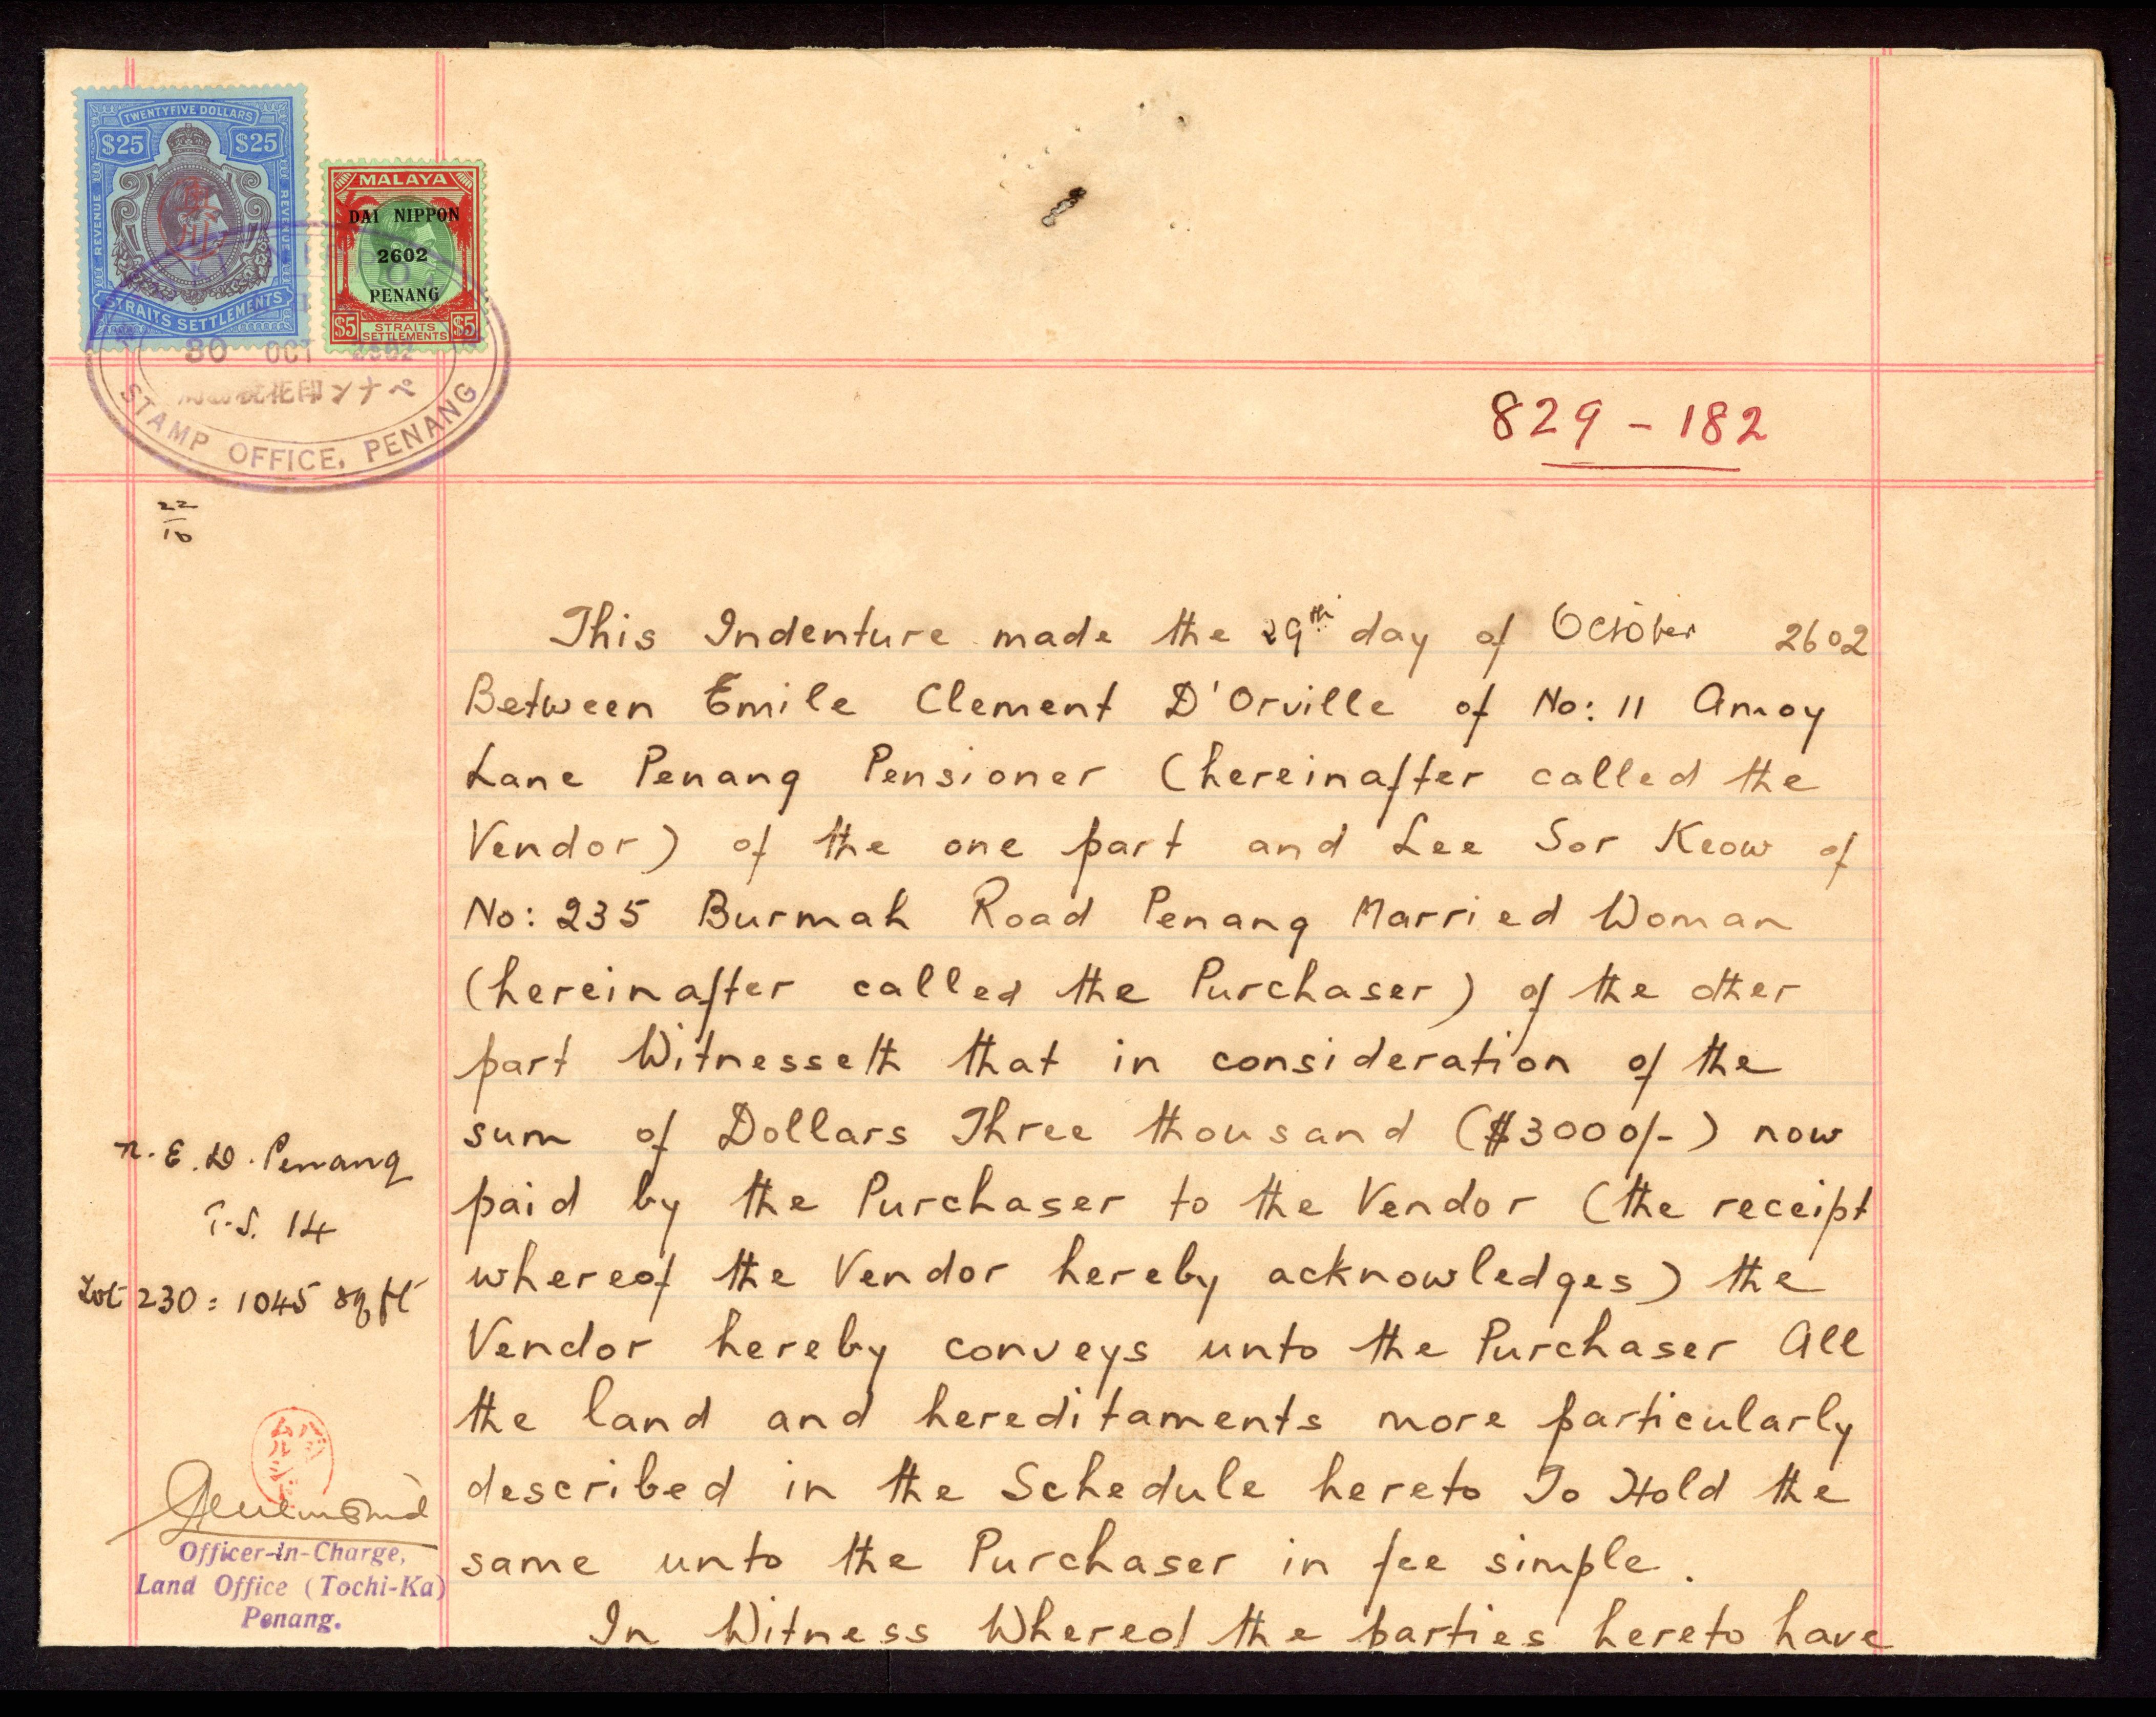 TWENTYFIVE DOLLARS
$25 $25
REVENUE REVENUE
STRAITS SETTLEMENTS
MALAYA
DAI NIPPON
2602
PENANG
$5 STRAITS SETTLEMENTS $5
30 OCT 2602
印ンナペ
STAMP OFFICE, PENANG
829 - 182
22
10
This Indenture made the 29th day of October 2602
Between Emile Clement D'Orville of No: 11 Amoy
Lane Penang Pensioner (hereinafter called the
Vendor) of the one part and Lee Sor Keow of
No: 235 Burmah Road Penang Married Woman
(hereinafter called the Purchaser) of the other
part Witnesseth that in consideration of the
sum of Dollars Three thousand ($3000/-) now
paid by the Purchaser to the Vendor (the receipt
whereof the Vendor hereby acknowledges) the
Vendor hereby conveys unto the Purchaser All
the land and hereditaments more particularly
described in the Schedule hereto To Hold the
same unto the Purchaser in fee simple.
In Witness Whereof the parties hereto have
N.E.D. Penang
T.S. 14
Lot 230 = 1045 sq ft
Officer-in-Charge,
Land Office (Tochi-Ka)
Penang.